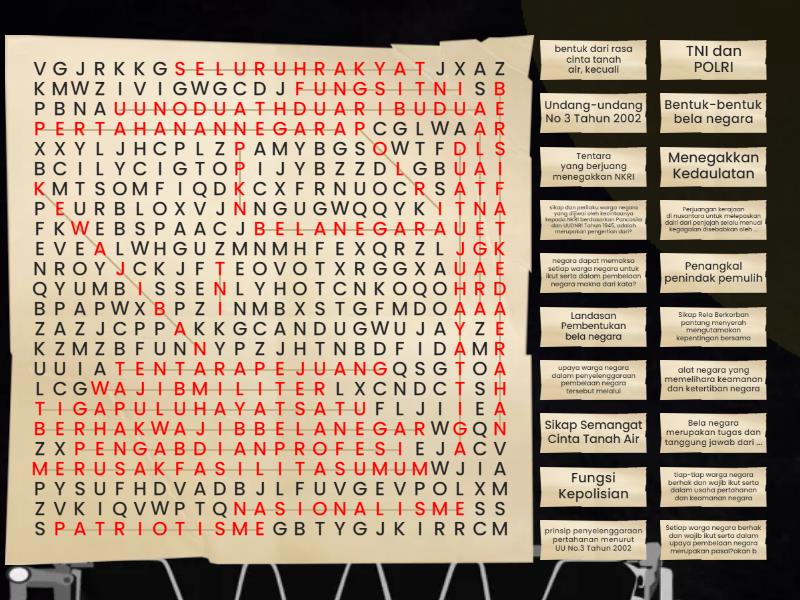 V G J R K K G S E L U R U H R A K Y A T J X A Z
K M W Z I V I G W G C D J F U N G S I T N I S B
P B N A U U N O D U A T H D U A R I B U D U A E
P E R T A H A N A N N E G A R A P C G L W A A R
X X Y L J H C P L Z P A M Y B G S O W T F D L S
B C I L Y C I G T O P I J Y B Z Z D L G B U A I
K M T S O M F I Q D K C X F R N U O C R S A T F
P E U R B L O X V J N N G U G W Q Q Y K I T N A
F K W E B S P A A C J B E L A N E G A R A U E T
E V E A L W H G U Z M N M H F E X Q R Z L J G K
N R O Y J C K J F T E O V O T X R G G X A U A E
Q Y U M B I S S E N L Y H O T C N K O Q O H R D
B P A P W X B P Z I N M B X S T G F M D O A A A
Z A Z J C P P A K K G C A N D U G W U J A Y Z E
K Z M Z B F U N N Y P Z J H T N B D F I D A M R
U U I A T E N T A R A P E J U A N G Q S G T O A
L C G W A J I B M I L I T E R L X C N D C T S H
T I G A P U L U H A Y A T S A T U F L J I I E A
B E R H A K W A J I B B E L A N E G A R W G Q N
Z X P E N G A B D I A N P R O F E S I E J A C V
M E R U S A K F A S I L I T A S U M U M W J I A
P Y S U F H D V A D B J L F U V G E V P O L X M
Z V K I Q V W P T Q N A S I O N A L I S M E S S
S P A T R I O T I S M E G B T Y G J K I R R C M
bentuk dari rasa
cinta tanah
air, kecuali
TNI dan
POLRI
Undang-undang
No 3 Tahun 2002
Bentuk-bentuk
bela negara
Tentara
yang berjuang
menegakkan NKRI
Menegakkan
Kedaulatan
sikap dan perilaku warga negara
yang dijiwai oleh kecintaanya
kepada NKRI berdasarkan Pancasila
dan UUDNRI Tahun 1945, adalah
merupakan pengertian dari?
Perjuangan kerajaan
di nusantara untuk melepaskan
dairi dari penjajah selalu menuai
kegagalan disebabkan oleh ...
negara dapat memaksa
setiap warga negara untuk
ikut serta dalam pembelaan
negara makna dari kata?
Penangkal
penindak pemulih
Landasan
Pembentukan
bela negara
Sikap Rela Berkorban
pantang menyerah
mengutamakan
kepentingan bersama
upaya warga negara
dalam penyelenggaraan
pembelaan negara
tersebut melalui
alat negara yang
memelihara keamanan
dan ketertiban negara
Sikap Semangat
Cinta Tanah Air
Bela negara
merupakan tugas dan
tanggung jawab dari ...
Fungsi
Kepolisian
tiap-tiap warga negara
berhak dan wajib ikut serta
dalam usaha pertahanan
dan keamanan negara
prinsip penyelenggaraan
pertahanan menurut
UU No.3 Tahun 2002
Setiap warga negara berhak
dan wajib ikut serta dalam
upaya pembelaan negara
merupakan pasal?akan b